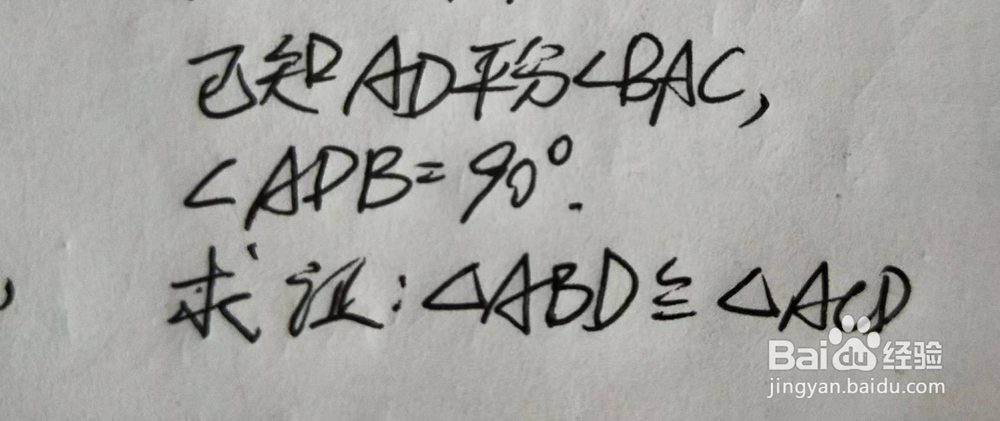 已知AD平分∠BAC,
∠ADB=90°.
求证:△ABD≌△ACD
Baidu经验
jingyan.baidu.com